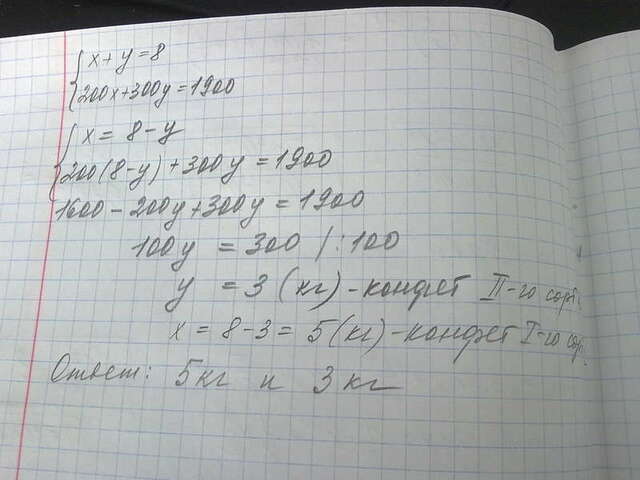 x + y = 8
200x + 300y = 1900
x = 8 - y
200(8 - y) + 300y = 1900
1600 - 200y + 300y = 1900
100y = 300 | : 100
y = 3 (кг) - конфет II-го сорт.
x = 8 - 3 = 5 (кг) - конфет I-го сор
Ответ: 5 кг и 3 кг